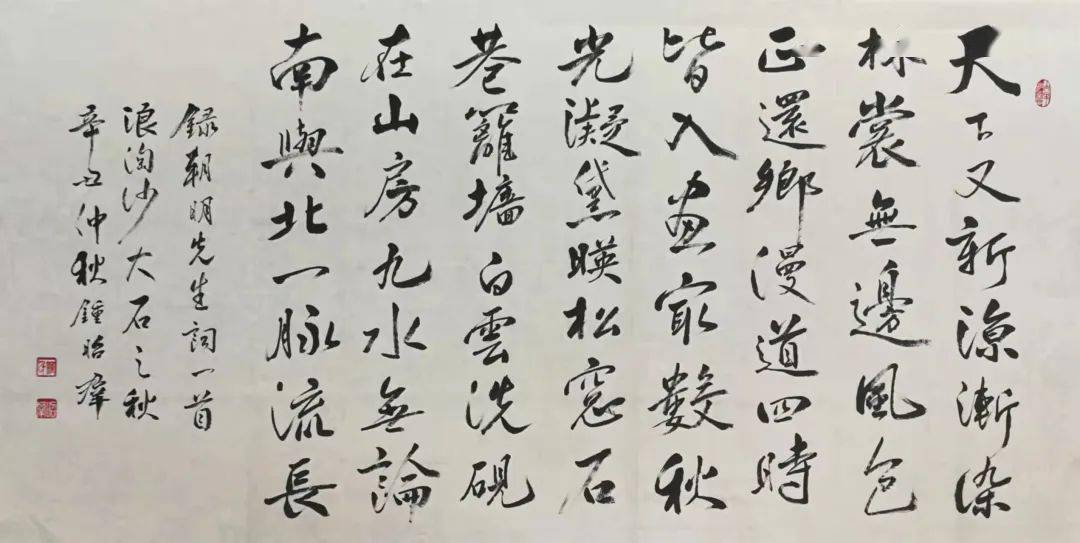 天下又新涼漸染
林裳無邊風色
正還鄉漫道四時
皆入畫最數秋
光凝黛映松窓石
巷籬墻白雲洗硯
在山房九水無論
南與北一脉流長
録朝明先生詞一首
浪淘沙大石之秋
辛丑仲秋鍾昭